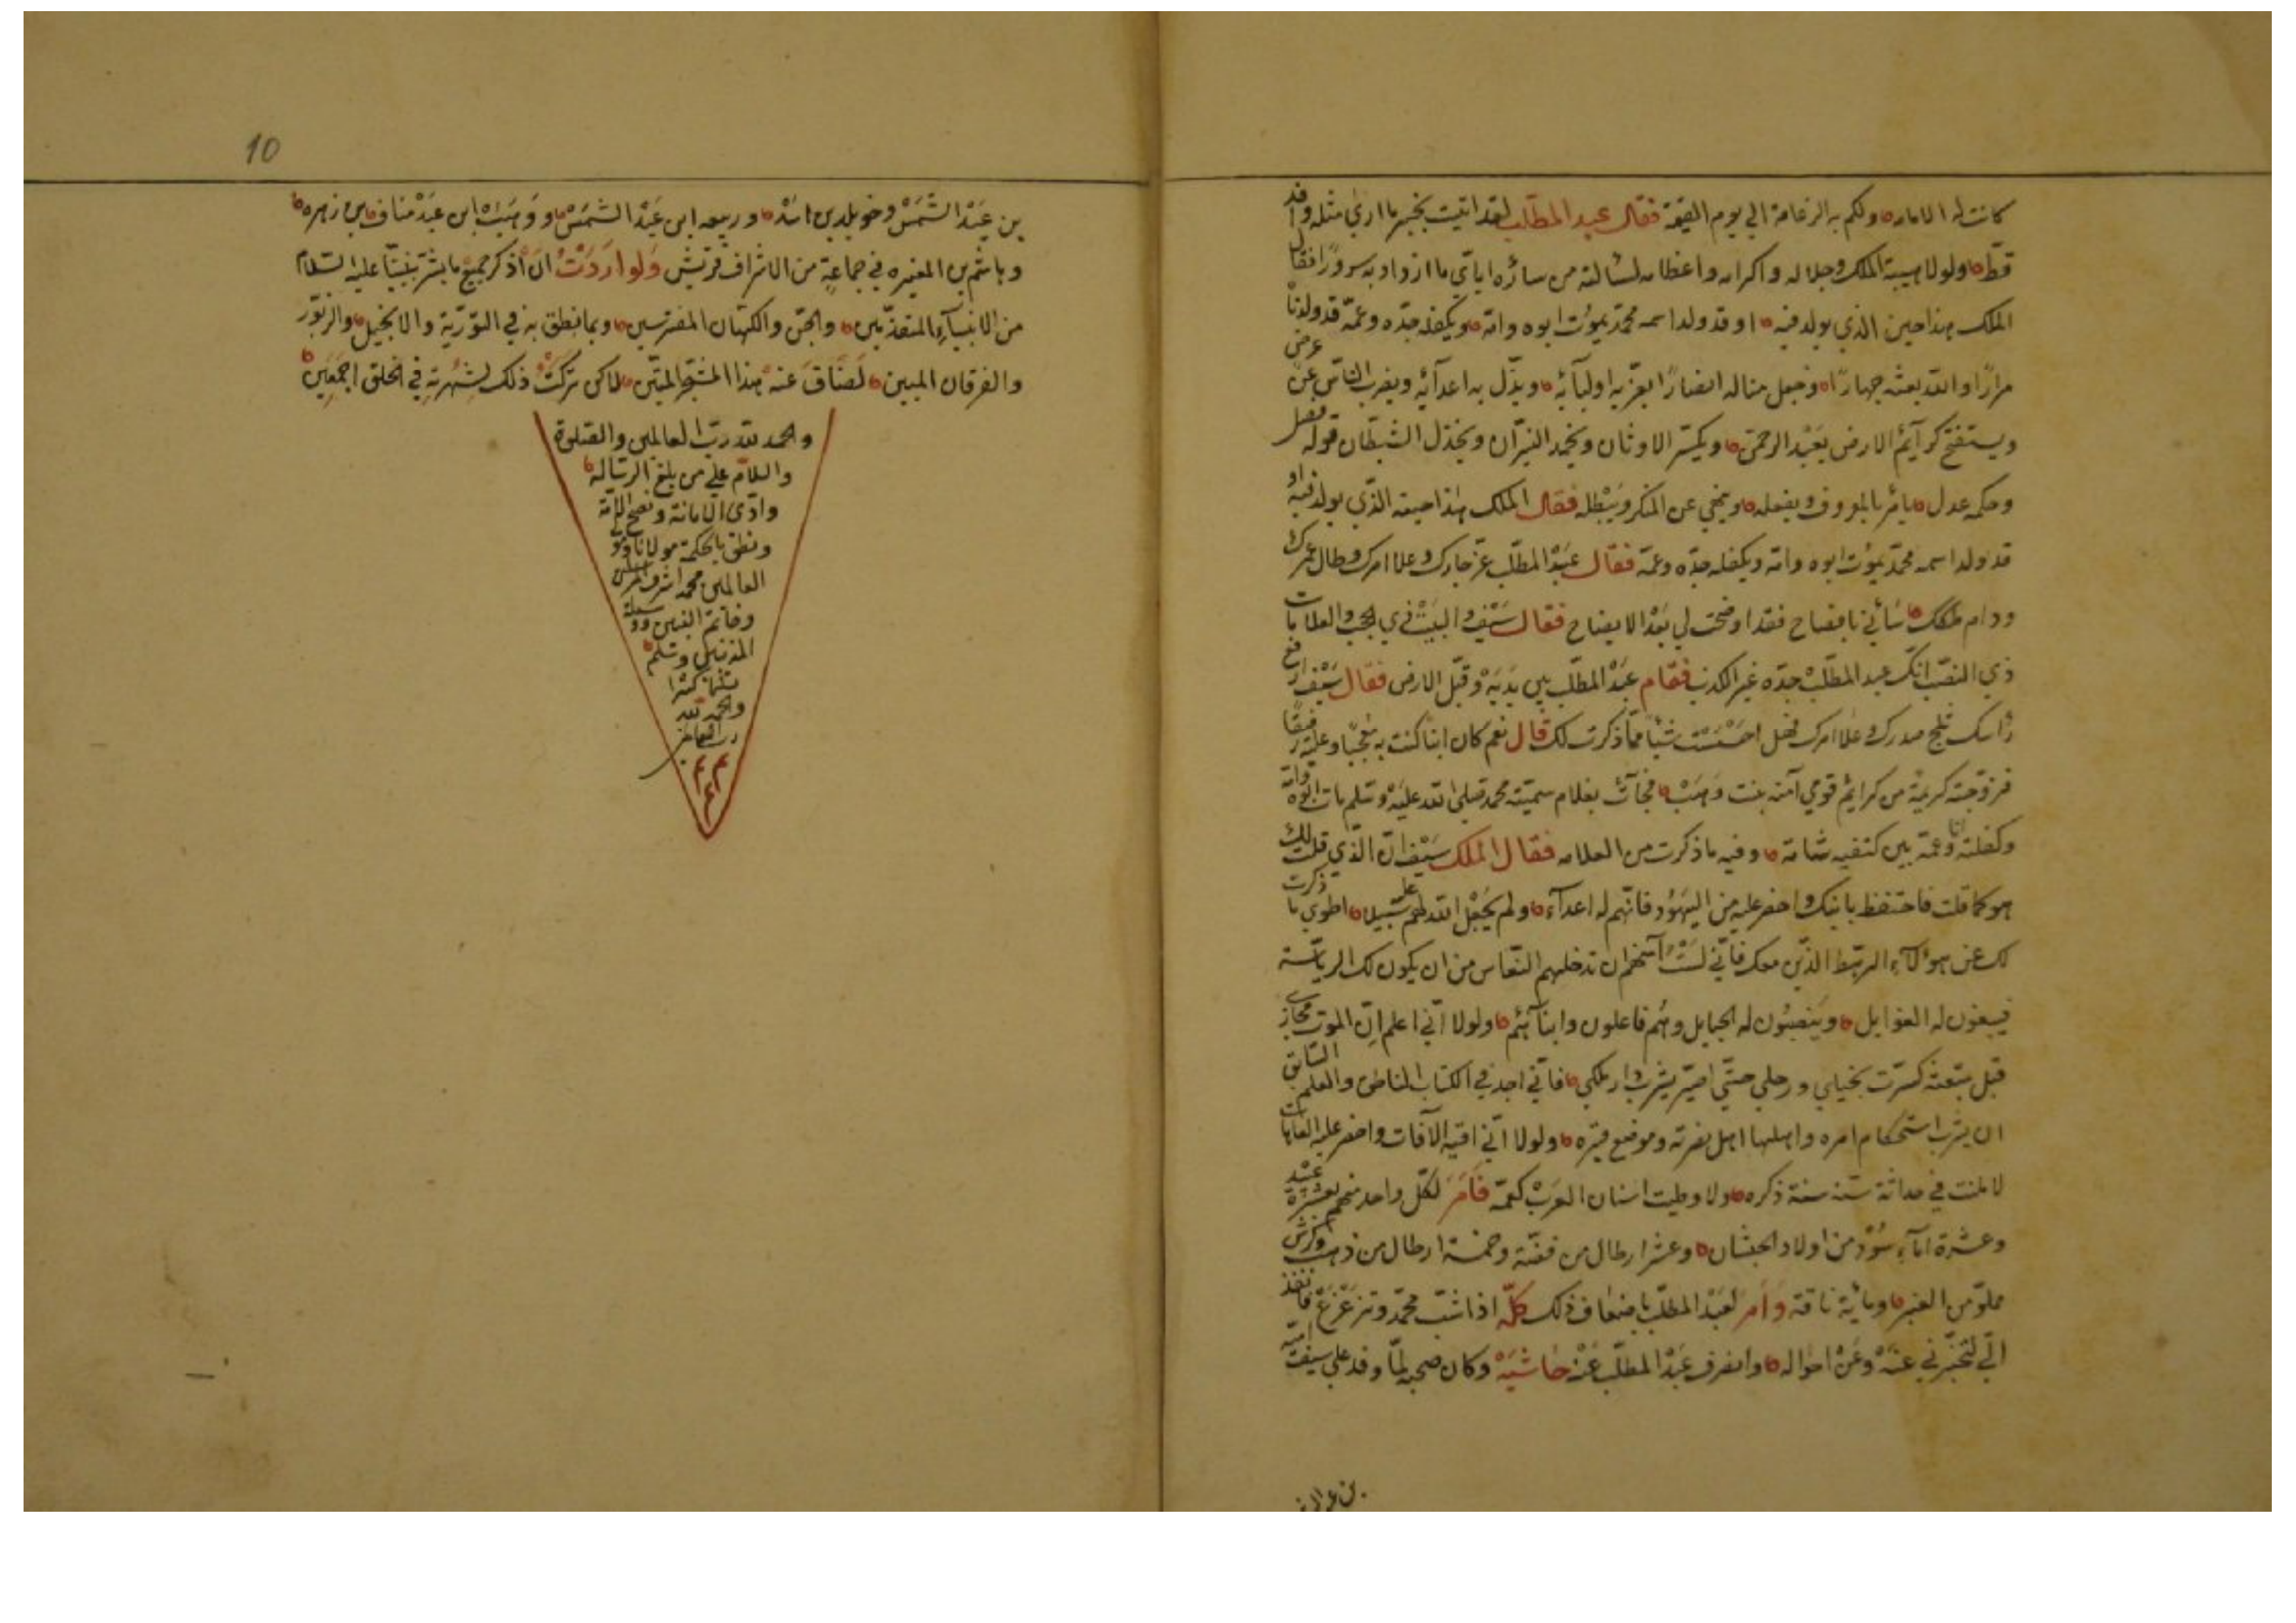 كانت له الامامه ولكم به الزعامة الي يوم القيمة فقال عبد المطلب لقد اتيت بخبر ما اري مثله وافد
قط ولولا هيبة الملك وجلاله واكرامه واعظامه لسالته من سارّه اياي ما ازداد به سرورًا فقال
الملك هذا حين الذي يولد فيه او قد ولد اسمه محمّد يموت ابوه وامّه ويكفله جدّه وعمّه قد ولدناه
مرارًا والله يعثه جهارًا وجعل مناله انصارًا يعزّ به اوليآئه ويذّل به اعدآئه ويضرب الناس عن عرض
ويستفتح كرآيم الارض يعبد الرحمن ويكسّر الاوثان ويخمد النيران ويخذل الشيطان قوله فصل
وحكمه عدل يامر بالمعروف ويفعله وينهي عن المنكر ويبطله فقال الملك هذا حينه الذي يولد فيه او
قد ولد اسمه محمّد يموت ابوه وامّه ويكفله جدّه وعمّه فقال عبد المطلب عزّ جارك وعلا امرك وطال عمرك
ودام ملكك بافصاح فقد اوضحت لي بعد الايضاح فقال سيف والبيت ذي الحجب والعلامات
ذي النصب انك عبد المطلب جدّه غير الكذب فقام عبد المطلب بين يديه وقبّل الارض فقال سيف ارفع
رأسك ثلج صدرك وعلا امرك فهل احسست شيأ ممّا ذكرت لك قال نعم كان ابنا كنت به معجبًا وعليه رفيقًا
فزوّجته كريمة من كرايم قومي آمنه بنت وهب فجآئت بغلام سميته محمد صلى الله عليه وسلم مات ابوه وامّه
وكفلته انا وعمّه بين كتفيه شامة وفيه ما ذكرت من العلامه فقال الملك سيف انّ الذي قلت لك
هو كما قلت فاحتفظ بابنك واحضر عليه من اليهود فانّهم له اعدآء ولم يجعل الله لهم عليه سبيلا اطوي ما ذكرت
لك عن هؤلآء الرهط الذين معك فانّي لست آمنهم ان تدخلهم النفاس من ان يكون لك الرياسة
فيبغون له الغوايل وينصبون له الحبايل وهم فاعلون وابنآئهم ولولا انّي اعلم انّ الموت مجازي
قبل مبعثه لسرت بخيلي ورجلي حتّي اصير يثرب دار ملكي فانّي اجد في الكتاب الناطق والعلم السابق
ان يثرب استحكام امره واهلها اهل نصرته وموضع قبره ولولا انّي اقيه الآفات واحضر عليه العاهات
لاعلنت في حداثة سنه ذكره ولاوطيت اسنان العرب كعبه فأمر لكل واحد منهم بعشرة عبيد
وعشرة امآء سود من اولاد الحبشان وعشر ارطال من فضّة وخمسة ارطال من ذهب وكرش
مملوّ من العنبر ومأية ناقة وأمر لعبد المطلب باضعاف ذلك كلّه اذا شبّ محمّد وترعرع فانفذ
الّي لتخبرني عنه وعن احواله وانصرف عبد المطلب عنه حاشيه وكان صحبه لمّا وفد علي سيف اميّه
بن عبد الشمس
10
بن عبد الشمس وخويلد بن اسد وربيعه ابن عبد الشمس ووهب ابن عبد مناف بن زهره
وهاشم بن المغيره في جماعة من الاشراف قريش ولو اردت ان اذكر جميع ما بشّر بنبينا عليه السلام
من الانبيآء المتقدّمين والجن والكهّان المفترسين وبما نطق به في التورية والانجيل والزبور
والفرقان المبين لضاق عنه هذا لاكن تركت ذلك لشهرته في الخلق اجمعين
والحمد لله ربّ العالمين والصلوة
والسلام علي من بلغ الرساله
وادّى الامانة ونصح الامّة
ونطق بالحكمة مولانا
العالمين محمد اشرف المرسلين
وخاتم النبيين ووسيلة
المذنبين وسلم
تسليما كثيرا
والحمد لله
رب العالمين
م م م